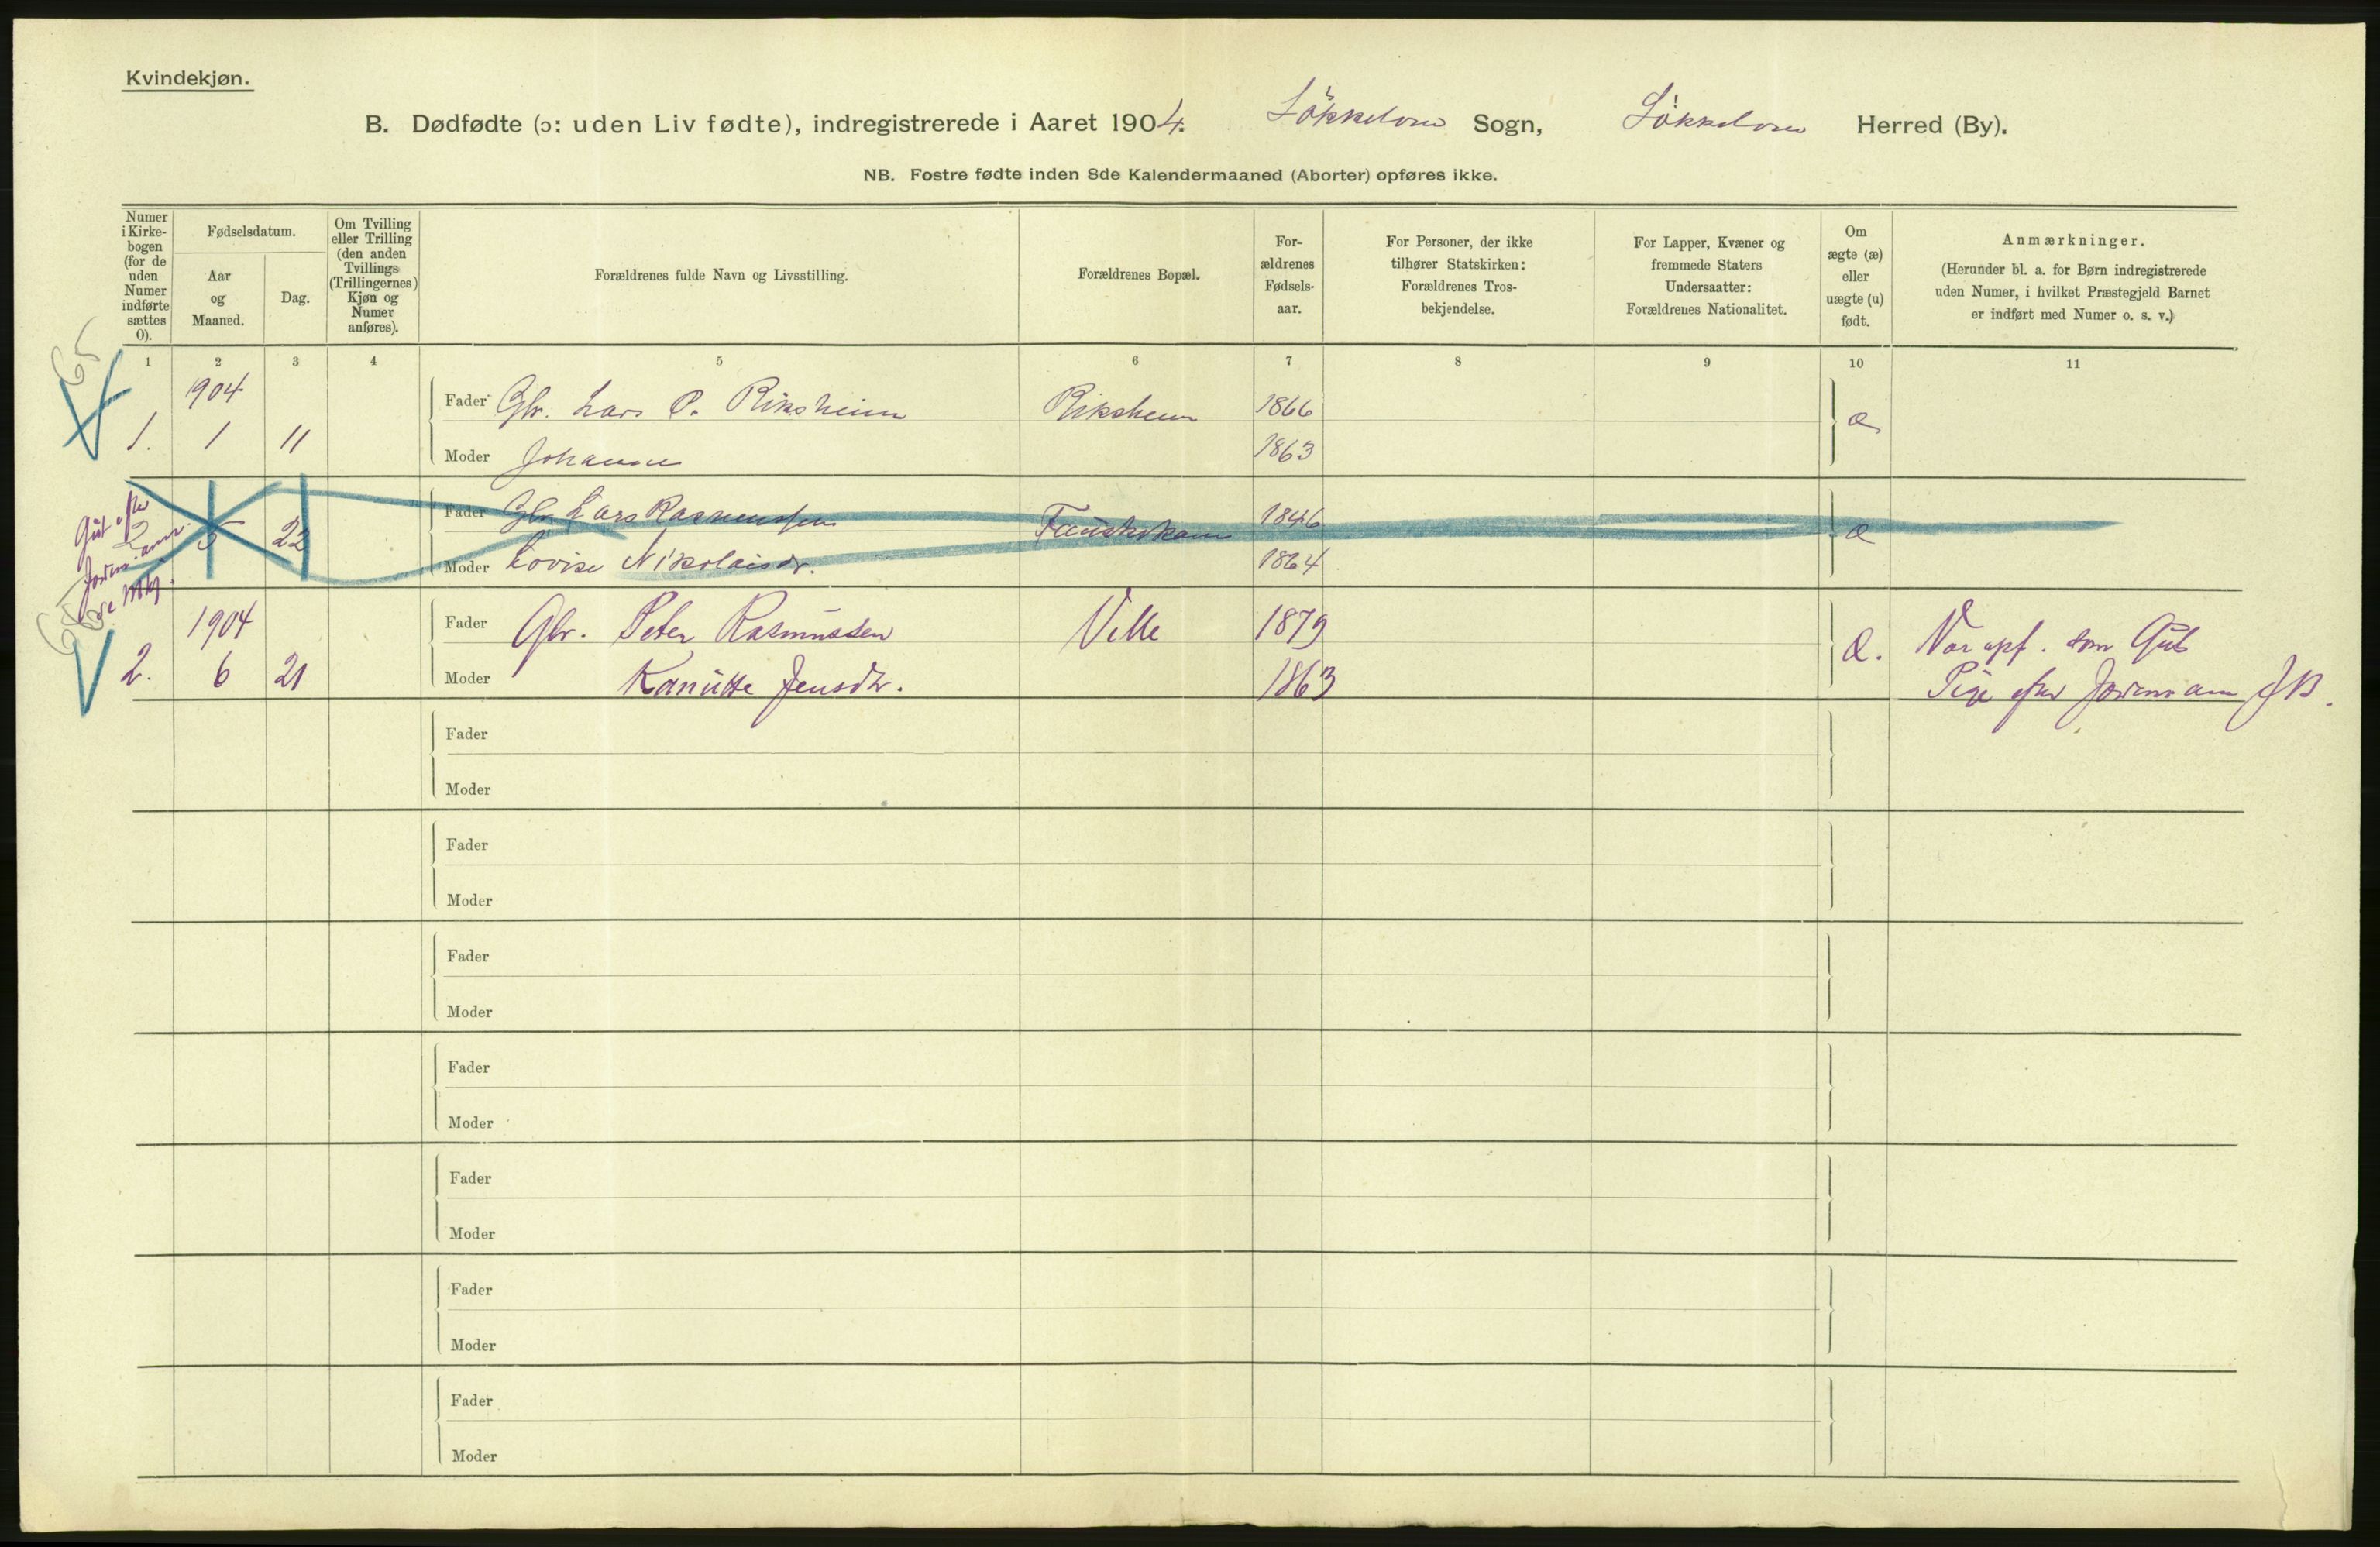 Kvindekjøn.
B. Dødfødte (ɔ: uden Liv fødte), indregistrerede i Aaret 1904. Søkkelven Sogn, Søkkelven Herred (By).
NB. Fostre fødte inden 8de Kalendermaaned (Aborter) opføres ikke.
Numer i Kirke- bogen (for de uden Numer indførte sættes 0).
Fødselsdatum.
Aar og Maaned.
Dag.
Om Tvilling eller Trilling (den anden Tvillings (Trillingernes) Kjøn og Numer anføres).
Forældrenes fulde Navn og Livsstilling.
Forældrenes Bopæl.
For- ældrenes Fødsels- aar.
For Personer, der ikke tilhører Statskirken: Forældrenes Tros- bekjendelse.
For Lapper, Kvæner og fremmede Staters Undersaatter: Forældrenes Nationalitet.
Om ægte (æ) eller uægte (u) født.
Anmærkninger.
(Herunder bl. a. for Børn indregistrerede uden Numer, i hvilket Præstegjeld Barnet er indført med Numer o. s. v.)
1 2 3 4 5 6 7 8 9 10 11
65
1904
Fader Gbr. Lars P. Riksheim Riksheim 1866 æ
1. 1 11
Moder Johanne 1863
Gut efter
5 22
Fader Gbr Lars Rasmussen 1846 æ
Moder Lovise Nikolaisdr. 1864
65
1904
Fader Gbr. Peter Rasmussen Velle 1879
2. 6 21 æ. Var opf. som Gut
Moder Kanutte Jensdtr. 1863
Pige efter Jordemoram JB.
Fader
Moder
Fader
Moder
Fader
Moder
Fader
Moder
Fader
Moder
Fader
Moder
Fader
Moder